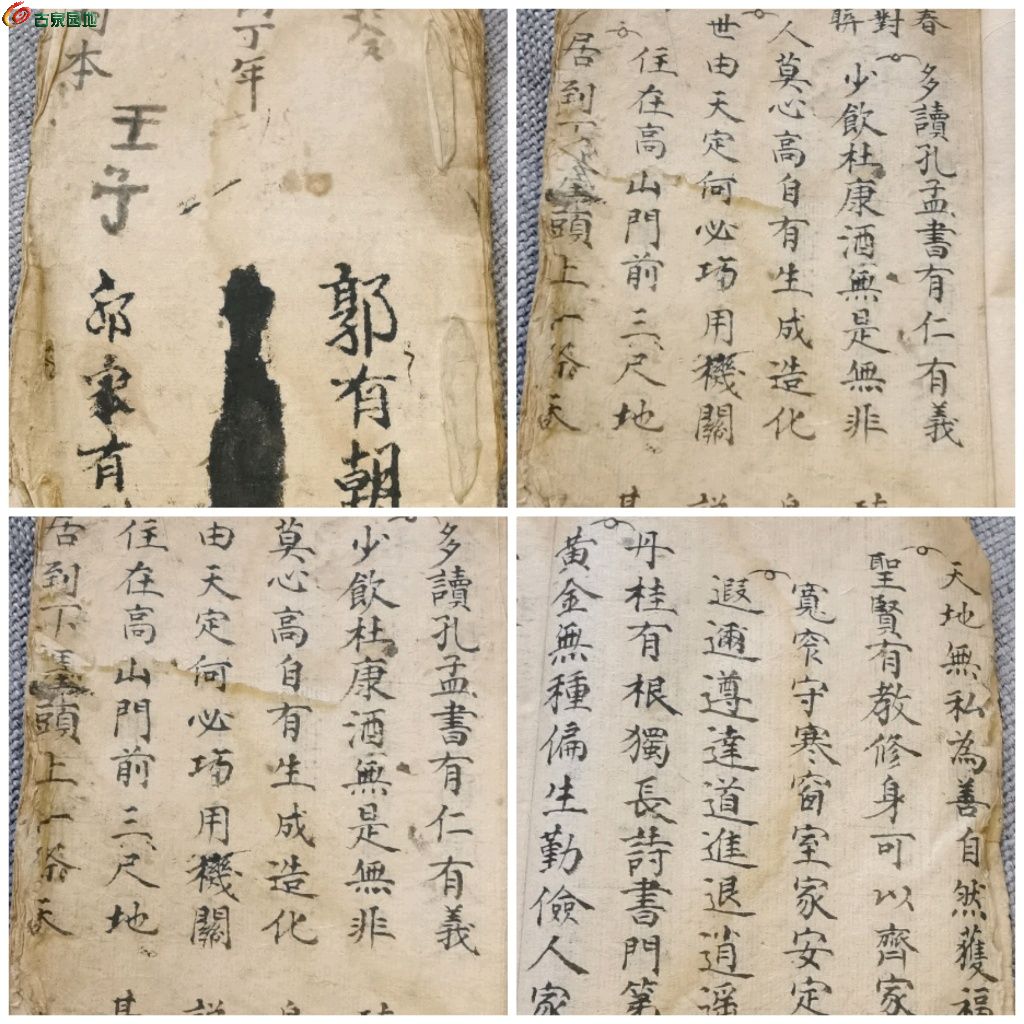 古泉园地
丁年
本
壬子
郭有朝
家有
春
對聯
多讀孔孟書有仁有義
少飲杜康酒無是無非
人莫心高自有生成造化
世由天定何必巧用機關
住在高山門前三尺地
居到下頭上一
多讀孔孟書有仁有義
少飲杜康酒無是無非
莫心高自有生成造化
由天定何必巧用機關
住在高山門前三尺地
居到下頭上一
天地無私為善自然獲福
聖賢有教修身可以齊家
寬窄守寒窗室家安定
遐邇遵達道進退逍遥
丹桂有根獨長詩書門第
黃金無種偏生勤儉人家